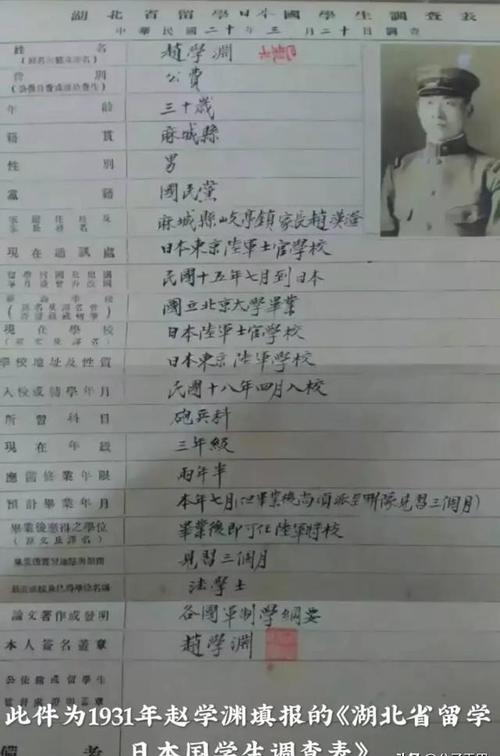 湖北省留學日本國學生調查表
中華民國二十年三月二十日調查
姓名 趙學淵
費別 公費
年齡 三十歲
籍貫 麻城縣
性別 男
黨籍 國民黨
麻城縣岐亭鎮家長趙漢澄
現在通訊處 日本東京陸軍士官學校
民國十五年七月到日本
國立北京大學畢業
現在學校 日本陸軍士官學校
學校地址及性質 日本東京陸軍學校
入校或轉學年月 民國十八年四月入校
所習科目 砲兵科
現在年級 三年級
應留修業年限 兩年半
預計畢業年月 本年七月(但畢業後尚須派至聯隊見習三個月)
畢業後應得之學位 畢業後即可任陸軍將校
(原文及譯名)
見習三個月
法學士
論文著作或發明 各國軍制學綱要
本人簽名蓋章 趙學淵
備考
此件为1931年赵学渊填报的《湖北省留学
日本国学生调查表》